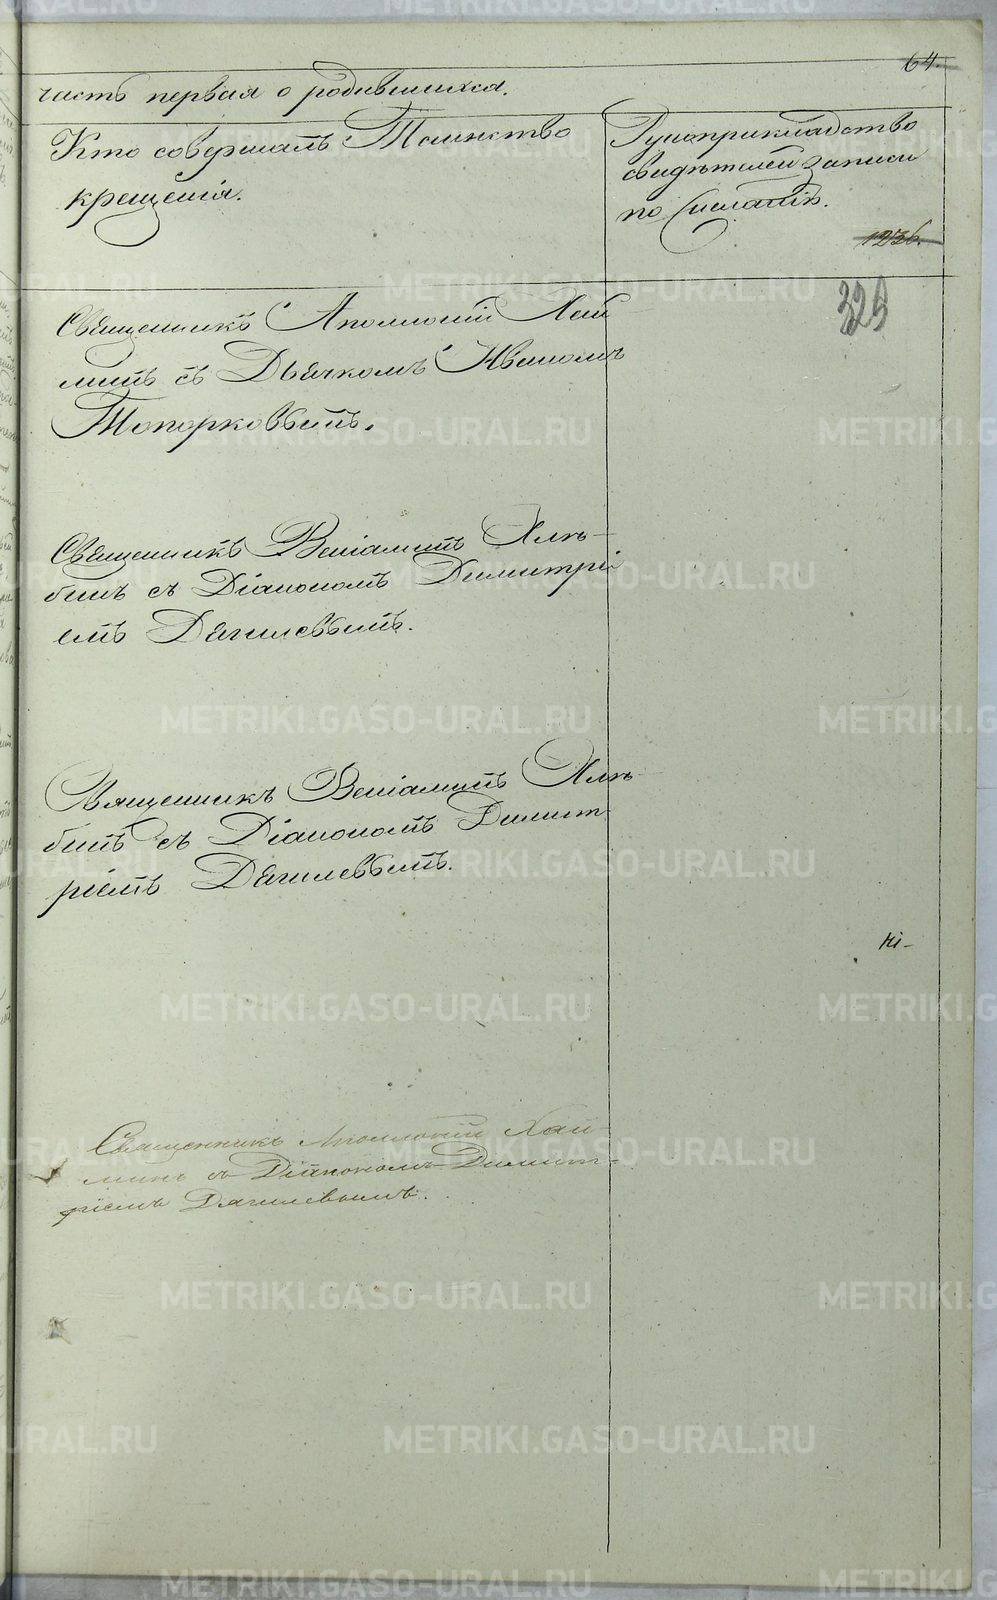 64.
часть первая о родившихся.
Кто совершалъ Таинство
крещенія.
Рукоприкладство
свидѣтелей записи
по желанію.
1236.
329
Священникъ Аполлоній Хай
минъ съ Дьячкомъ Иваномъ
Топорковымъ.
Священникъ Веніаминъ Хлѣ-
бинъ съ Діакономъ Димитрі
емъ Дягилевымъ.
Священникъ Веніаминъ Хлѣ-
бинъ съ Діакономъ Димит
ріемъ Дягилевымъ.
Священникъ Аполлоній Хай-
минъ съ Діакономъ Димит-
ріемъ Дягилевымъ.
METRIKI.GASO-URAL.RU